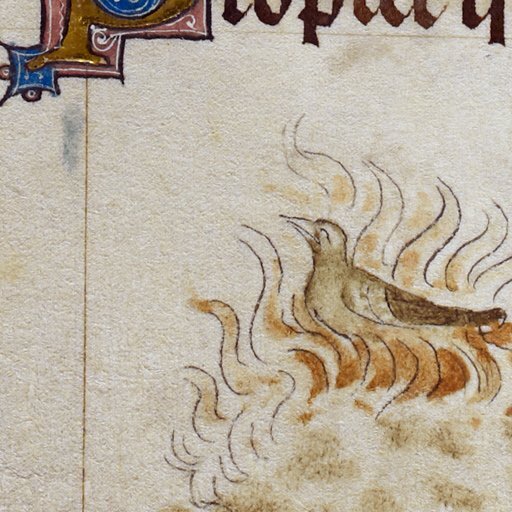 Propter q